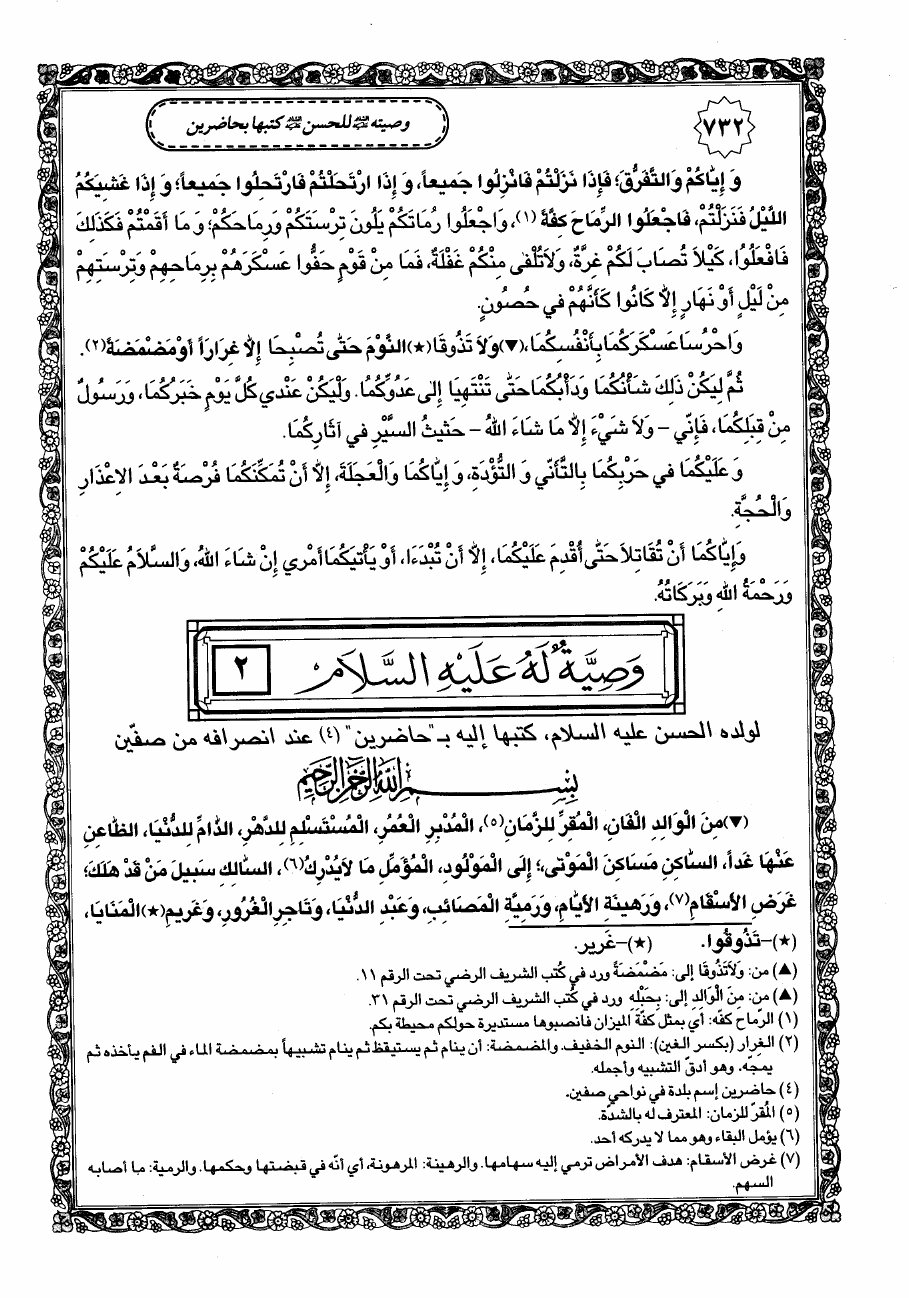 ٧٣٢
وصيته ﵇ للحسن ﵇ كتبها بحاضرين
وَ إِيَّاكُمْ وَالتَّفَرُّقَ؛ فَإِذَا نَزَلْتُمْ فَانْزِلُوا جَمِيعاً، وَ إِذَا ارْتَحَلْتُمْ فَارْتَحِلُوا جَمِيعاً؛ وَ إِذَا غَشِيَكُمُ
اللَّيْلُ فَنَزَلْتُمْ، فَاجْعَلُوا الرِّمَاحَ كَفَّةً (١)، وَاجْعَلُوا رُمَاتَكُمْ يَلُونَ تِرْسَتَكُمْ وَرِمَاحَكُمْ؛ وَ مَا أَقَمْتُمْ فَكَذَلِكَ
فَافْعَلُوا، كَيْلاَ تُصَابَ لَكُمْ غِرَّةٌ، وَلاَتُلْفى مِنْكُمْ غَفْلَةٌ، فَمَا مِنْ قَوْمٍ حَفُّوا عَسْكَرَهُمْ بِرِمَاحِهِمْ وَتِرْسَتِهِمْ
مِنْ لَيْلٍ أَوْ نَهَارٍ إِلاَّ كَانُوا كَأَنَّهُمْ في حُصُونٍ.
وَاحْرُسَا عَسْكَرَكُمَا بِأَنْفُسِكُمَا، (▼)وَلاَ تَذُوقَا(★)النَّوْمَ حَتّى تُصْبِحَا إِلاَّ غِرَاراً أَوْ مَضْمَضَةً(٢).
ثُمَّ لِيَكُنْ ذَلِكَ شَأْنُكُمَا وَدَأْبُكُمَا حَتّى تَنْتَهِيَا إِلى عَدُوِّكُمَا. وَلْيَكُنْ عَنْدي كُلَّ يَوْمٍ خَبَرُكُمَا، وَرَسُولٌ
مِنْ قِبَلِكُمَا، فَإِنّي – وَلاَ شَيْءَ إِلاَّ مَا شَاءَ اللهُ – حَثيثُ السَّيْرِ في آثَارِكُمَا.
وَ عَلَيْكُمَا في حَرْبِكُمَا بِالتَّأَنّي وَ التُّؤَدَةِ، وَ إِيَّاكُمَا وَالْعَجَلَةَ، إِلاَّ أَنْ تُمَكِّنَكُمَا فُرْصَةٌ بَعْدَ الاِعْذَارِ
وَالْحُجَّةِ.
وَإِيَّاكُمَا أَنْ تُقَاتِلاَ حَتّى أُقْدِمَ عَلَيْكُمَا، إِلاَّ أَنْ تُبْدَءَا، أَوْ يَأْتِيَكُمَا أَمْري إِنْ شَاءَ اللهُ، وَالسَّلاَمُ عَلَيْكُمْ
وَرَحْمَةُ اللهِ وَبَرَكَاتُهُ.
وَصِيَّةٌ لَهُ عَلَيْهِ السَّلاَمُ ٢
لولده الحسن عليه السلام، كتبها إليه بـ"حاضرين" (٤) عند انصرافه من صفّين
بِسْمِ اللهِ الرَّحْمنِ الرَّحِيمِ
(▼)مِنَ الْوَالِدِ الْفَانِ، الْمُقِرِّ لِلزَّمَانِ(٥)، الْمُدْبِرِ الْعُمُرِ، الْمُسْتَسْلِمِ لِلدَّهْرِ، الذَّامِّ لِلدُّنْيَا، الظَّاعِنِ
عَنْهَا غَداً، السَّاكِنِ مَسَاكِنَ الْمَوْتى،؛ إِلَى الْمَوْلُودِ، الْمُؤَمِّلِ مَا لاَيُدْرِكُ(٦)، السَّالِكِ سَبيلَ مَنْ قَدْ هَلَكَ؛
غَرَضِ الأَسْقَامِ(٧)، وَرَهينَةِ الأَيَّامِ، وَرَمِيَّةِ الْمَصَائِبِ، وَعَبْدِ الدُّنْيَا، وَتَاجِرِ الْغُرُورِ، وَغَريمِ(★)الْمَنَايَا،
(★)–تَذُوقُوا. (★)–غَرير.
(▲) من: وَلاَتَذُوقَا إلى: مَضْمَضَةً ورد في كُتب الشريف الرضي تحت الرقم ١١.
(▲) من: مِنَ الْوَالِدِ إلى: بِحَبْلِهِ ورد في كُتب الشريف الرضي تحت الرقم ٣١.
(١) الرّماحَ كفّه: أي بمثل كفّةَ الميزان فانصبوها مستديرة حولكم محيطة بكم.
(٢) الغِرار (بكسر الغين): النوم الخفيف. والمضمضة: أن ينام ثم يستيقظ ثم ينام تشبيهاً بمضمضة الماء في الفم يأخذه ثم
يمجّه. وهو أدقّ التشبيه وأجمله.
(٤) حاضرين إسم بلدة في نواحي صفين.
(٥) المُقرّ للزمان: المعترف له بالشدّة.
(٦) يؤمل البقاء وهو مما لا يدركه أحد.
(٧) غرض الأسقام: هدف الأمراض ترمي إليه سهامها. والرهينة: المرهونة، أي أنّه في قبضتها وحكمها. والرمية: ما أصابه
السهم.